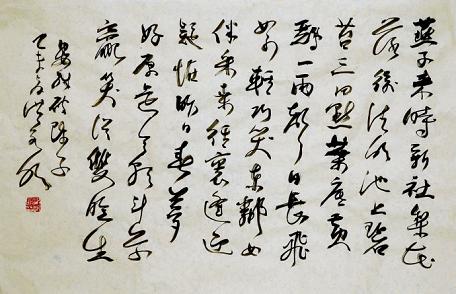 燕子来時新社梨花
落後清明池上碧
苔三四點葉底黄
鸝一兩聲日長飛
絮輕巧笑東鄰女
伴采桑徑裏逢迎
疑怪昨日春夢
好原是今朝斗草
贏笑從雙臉生
晏殊破陣子
乙未